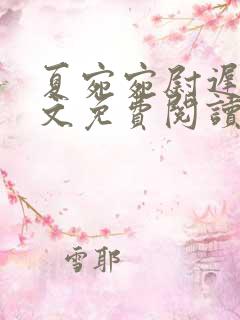 夏宛宛尉遲
文免費閱讀
雪耶